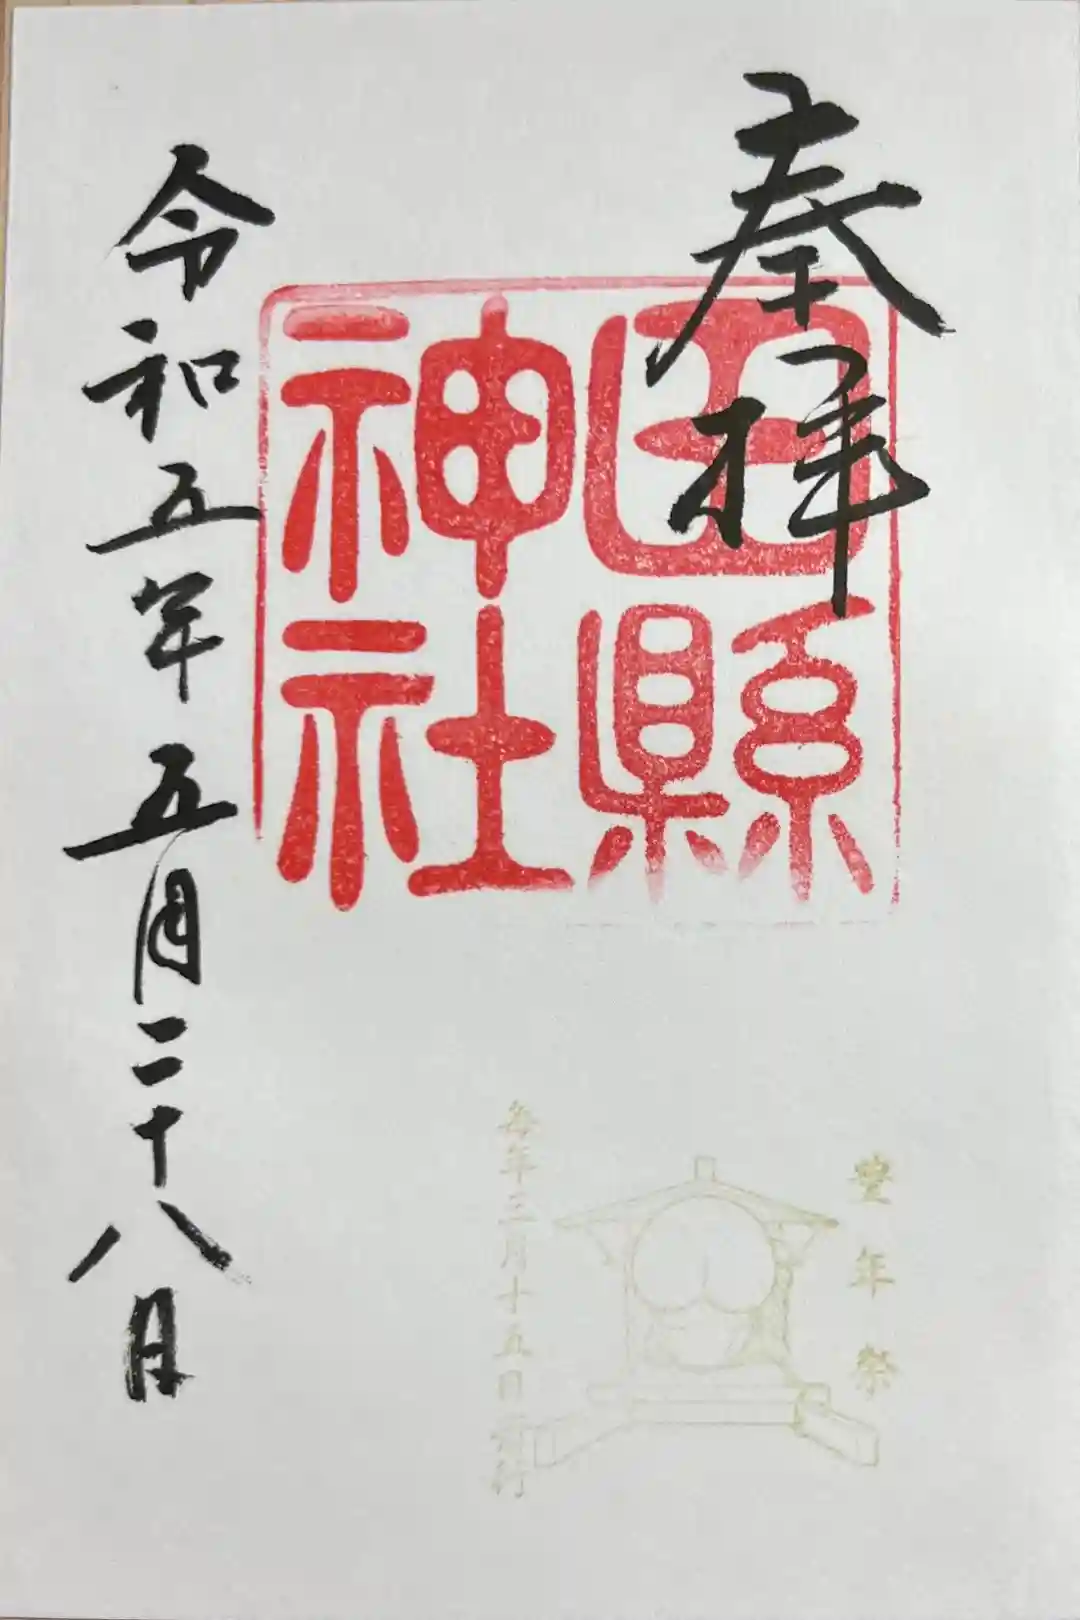 奉拝
田縣
神社
令和五年五月二十八日
豊年祭
毎年三月十五日